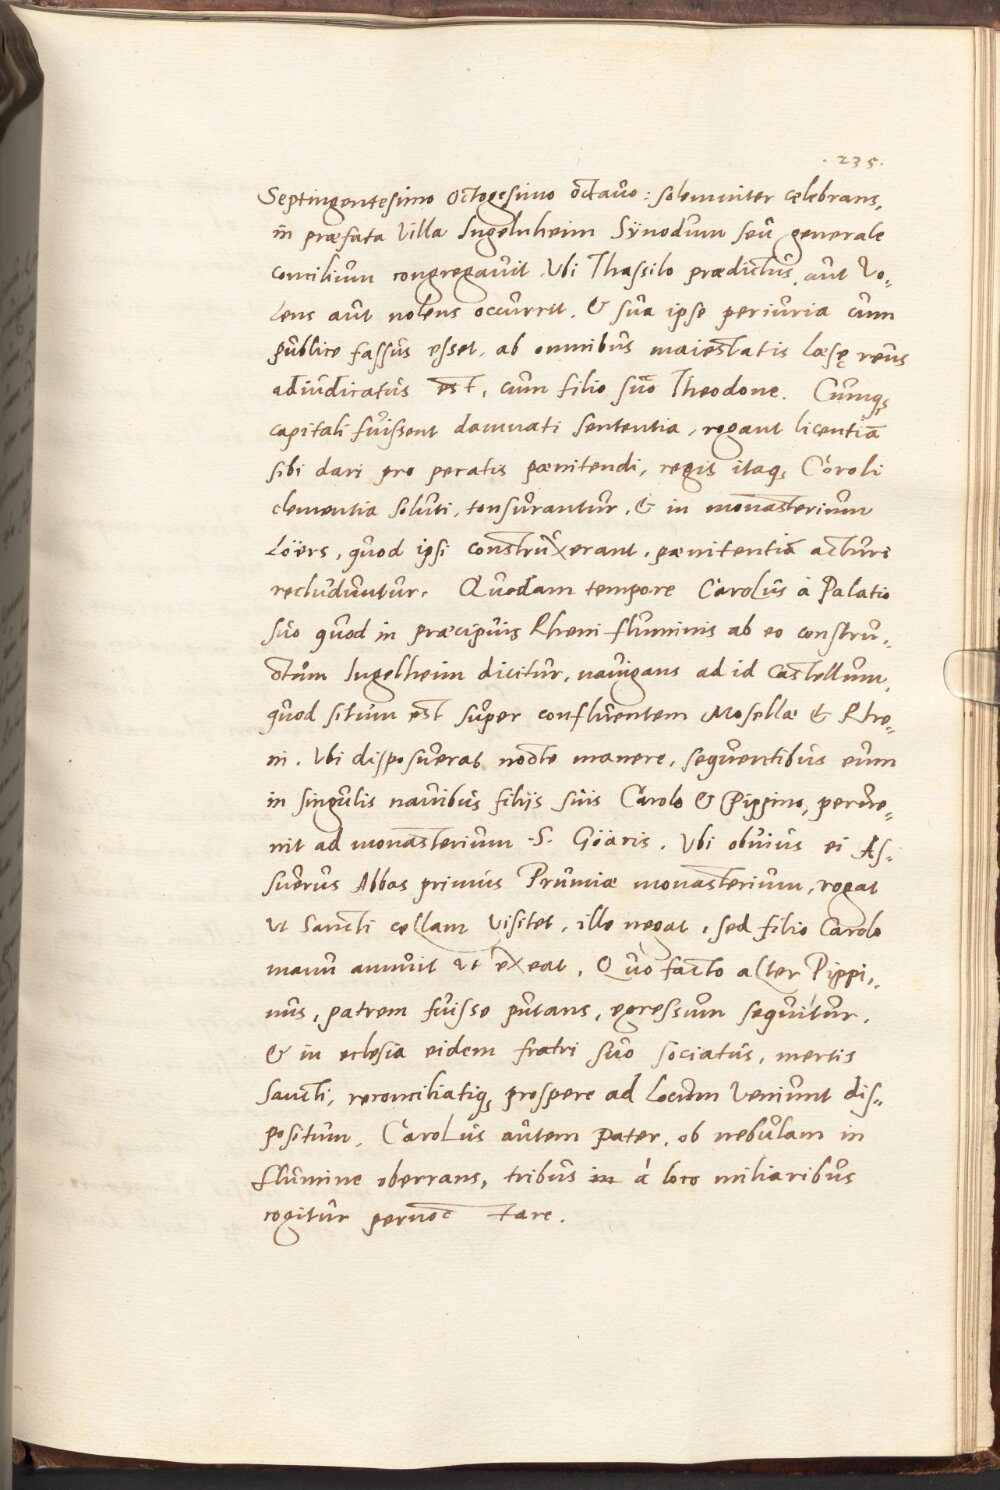 . 235 .
Septingentesimo Octogesimo octavo : solemniter celebrans,
in præfata Villa Ingelnheim Sÿnodum seu generale
concilium congregavit. Ubi Thassilo prædictus, aut vo„
lens aut nolens occurrit. & sua ipse periuria cum
publice fassus esset, ab omnibus maiestatis læsę reus
adiudicatus est, cum filio suo Theodone. Cumq;
capitali fuissent damnati sententia, rogant licentiā
sibi dari pro pecatis pænitendi, regis itaq; Caroli
clementia soluti, tonsurantur, & in monasterium
Loÿrs, quod ipsi construxerant, pænitentiā acturi
recluduntur. Quodam tempore Carolus à Palatio
suo quod in præcipuis Rheni fluminis ab eo constru„
ctum Ingelheim dicitur, navigans ad id castellum,
quod situm est super confluentem Mosellæ & Rhe„
ni. Ubi disposuerat nocte manere, sequentibus eum
in singulis navibus filijs suis Carolo & Pippino, perve„
nit ad monasterium .S. Göaris. Ubi obvius ei As„
suerus Abbas primus Prumiæ monasterium, rogat
ut Sancti cęllam visitet, ille negat, sed filio Carolo
manu annuit ut exeat. Quo facto alter Pippi„
nus, patrem fuisse putans, egressum sequitur.
& in eclesia eidem fratri suo sociatus, mertis
Sancti, reconciliatiq; prospere ad locum veniunt dis„
positum. Carolus autem pater, ob nebulam in
flumine oberrans, tribus in à loco miliaribus
cogitur pernoctare.